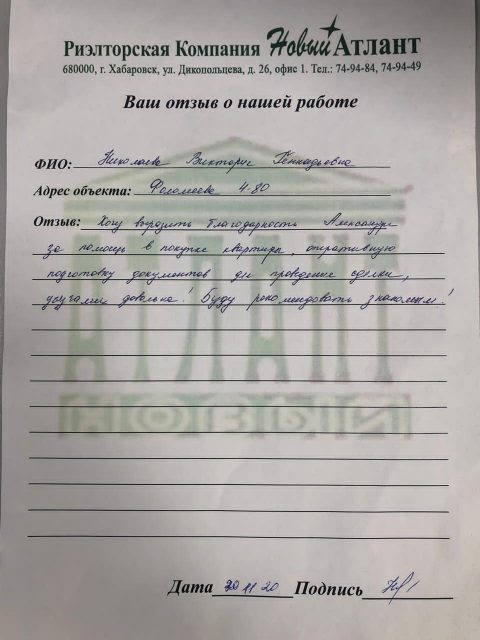 Риэлторская Компания Новый Атлант
680000, г. Хабаровск, ул. Дикопольцева, д. 26, офис 1. Тел.: 74-94-84, 74-94-49
Ваш отзыв о нашей работе
ФИО: Николаева Виктория Геннадьевна
Адрес объекта: 4-80
Отзыв: Хочу выразить благодарность Александру
за помощь в покупке квартиры, оперативную
подготовку документов для проведения сделки,
услугами довольна! Буду рекомендовать знакомым!
Дата 20 11 20 Подпись
АТЛАНТ
НОВЫЙ